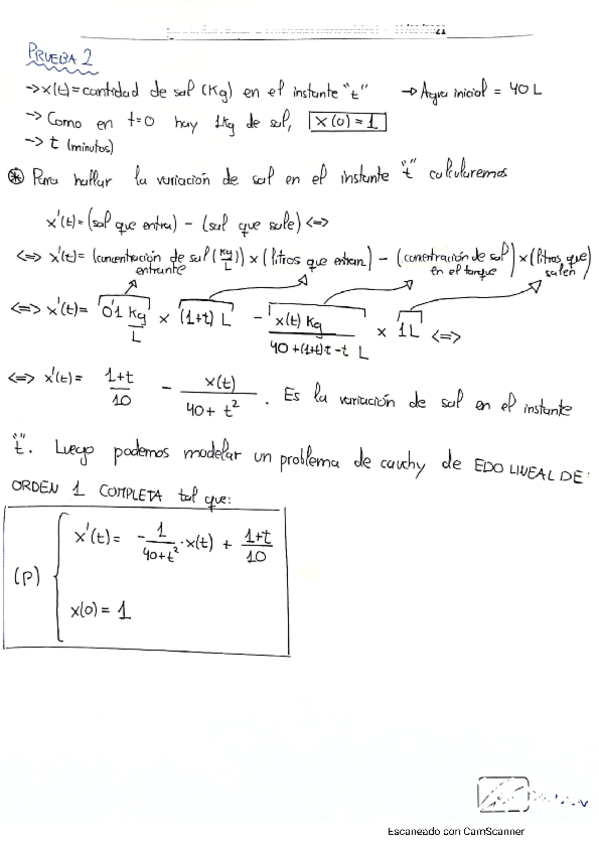 PRUEBA 2
→ x(t) = cantidad de sal (Kg) en el instante "t" → Agua inicial = 40 L
→ Como en t=0 hay 1Kg de sal, x(0) = 1
→ t (minutos)
⊛ Para hallar la variación de sal en el instante "t" calcularemos
x'(t) = (sal que entra) - (sal que sale) <=>
<=> x'(t) = (concentración de sal (Kg/L) entrante) × (litros que entran) - (concentración de sal en el tanque) × (litros que salen)
<=> x'(t) = 0'1 Kg/L × (1+t) L - x(t) Kg / 40 + (1+t)t - t L × 1L <=>
<=> x'(t) = 1+t/10 - x(t)/40 + t². Es la variación de sal en el instante
"t". Luego podemos modelar un problema de cauchy de EDO LINEAL DE:
ORDEN 1 COMPLETA tal que:
(P) { x'(t) = - 1/40+t² · x(t) + 1+t/10
x(0) = 1
Escaneado con CamScanner